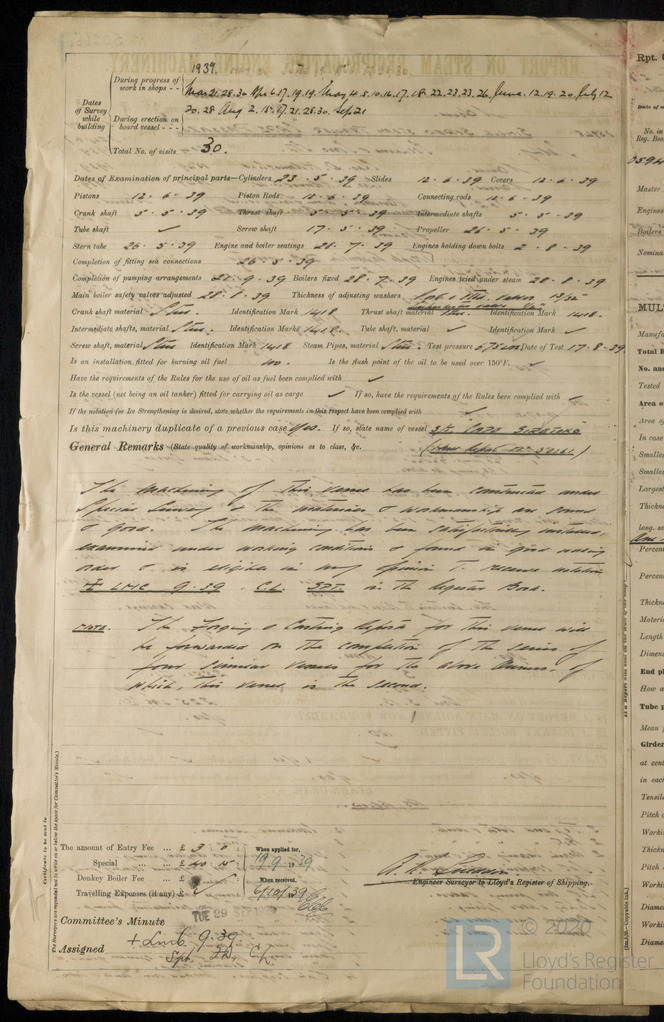 1939.
During progress of work in shops - -
Mar 21. 28. 30 Apr 6. 17. 19. 19. May 4. 8. 10. 16. 17. 18. 22. 23. 23. 26. June. 12. 19. 20 July 12
Dates of Survey while building
During erection on board vessel - - -
20. 28 Aug 2. 15. 17. 21. 28. 30. Sep 21
Total No. of visits 30.
Dates of Examination of principal parts—Cylinders 23 . 5 . 39 Slides 12 . 6 . 39 Covers 12 . 6 . 39
Pistons 12 . 6 . 39 Piston Rods 12 . 6 . 39 Connecting rods 12 . 6 . 39
Crank shaft 5 . 5 . 39 Thrust shaft 5 . 5 . 39 Intermediate shafts 5 . 5 . 39
Tube shaft ✓ Screw shaft 17 . 5 . 39 Propeller 26 . 5 . 39
Stern tube 26 . 5 . 39 Engine and boiler seatings 26 . 7 . 39 Engines holding down bolts 2 . 8 . 39
Completion of fitting sea connections 26 . 5 . 39
Completion of pumping arrangements 21 . 9 . 39 Boilers fixed 28 . 7 . 39 Engines tried under steam 28 . 8 . 39
Main boiler safety valves adjusted 28 . 8 . 39 Thickness of adjusting washers
Crank shaft material Steel. Identification Mark 1418 Thrust shaft material Steel. Identification Mark 1418.
Intermediate shafts, material Steel. Identification Marks 1418. Tube shaft, material ✓ Identification Mark ✓
Screw shaft, material Steel Identification Mark 1418 Steam Pipes, material Steel. Test pressure 675 lbs Date of Test 17 . 8 . 39
Is an installation fitted for burning oil fuel no. Is the flash point of the oil to be used over 150°F. ✓
Have the requirements of the Rules for the use of oil as fuel been complied with ✓
Is the vessel (not being an oil tanker) fitted for carrying oil as cargo ✓ If so, have the requirements of the Rules been complied with ✓
If the notation for Ice Strengthening is desired, state whether the requirements in this respect have been complied with ✓
Is this machinery duplicate of a previous case Yes. If so, state name of vessel
General Remarks (State quality of workmanship, opinions as to class, &c.
The Machinery of this vessel has been constructed under
Special Survey & the materials & workmanship are sound
& good. The machinery has been satisfactorily installed
examined under working conditions & found in good working
order & is eligible in my opinion to receive notation
✠ LMC 9.39 . C.L. SPT. in the Register Book.
Note. The Forging & Casting Reports for this vessel will
be forwarded on the completion of the series of
four similar vessels for the above Owners. of
which, this vessel is the second.
Certificate to be sent to
The Surveyors are requested not to write on or below the space for Committee's Minute.)
The amount of Entry Fee ... £ 3 : 0
Special ... £
Donkey Boiler Fee ... £
Travelling Expenses (if any) £
When applied for, 19.9.1939
When received, 6/10/1939
Engineer Surveyor to Lloyd's Register of Shipping.
Committee's Minute
TUE 29 SEP
Assigned + Lmc 9.39
Spt. CL
© 2020
LR
Lloyd's Register
Foundation
Rpt.
No. in
Reg. Boo
Master
Engines
Boilers
Nomina
MUL
Manufa
Total H
No. and
Tested
Area o
Area of
In case
Smalles
Smalles
Largest
Thickne
long. se
Percen
Percen
Thickn
Materia
Length
Dimen
End pl
How a
Tube p
Mean p
Girder
at cent
in each
Tensile
Pitch o
Workin
Thickn
Pitch o
Workin
Diamet
Workin
Diamet